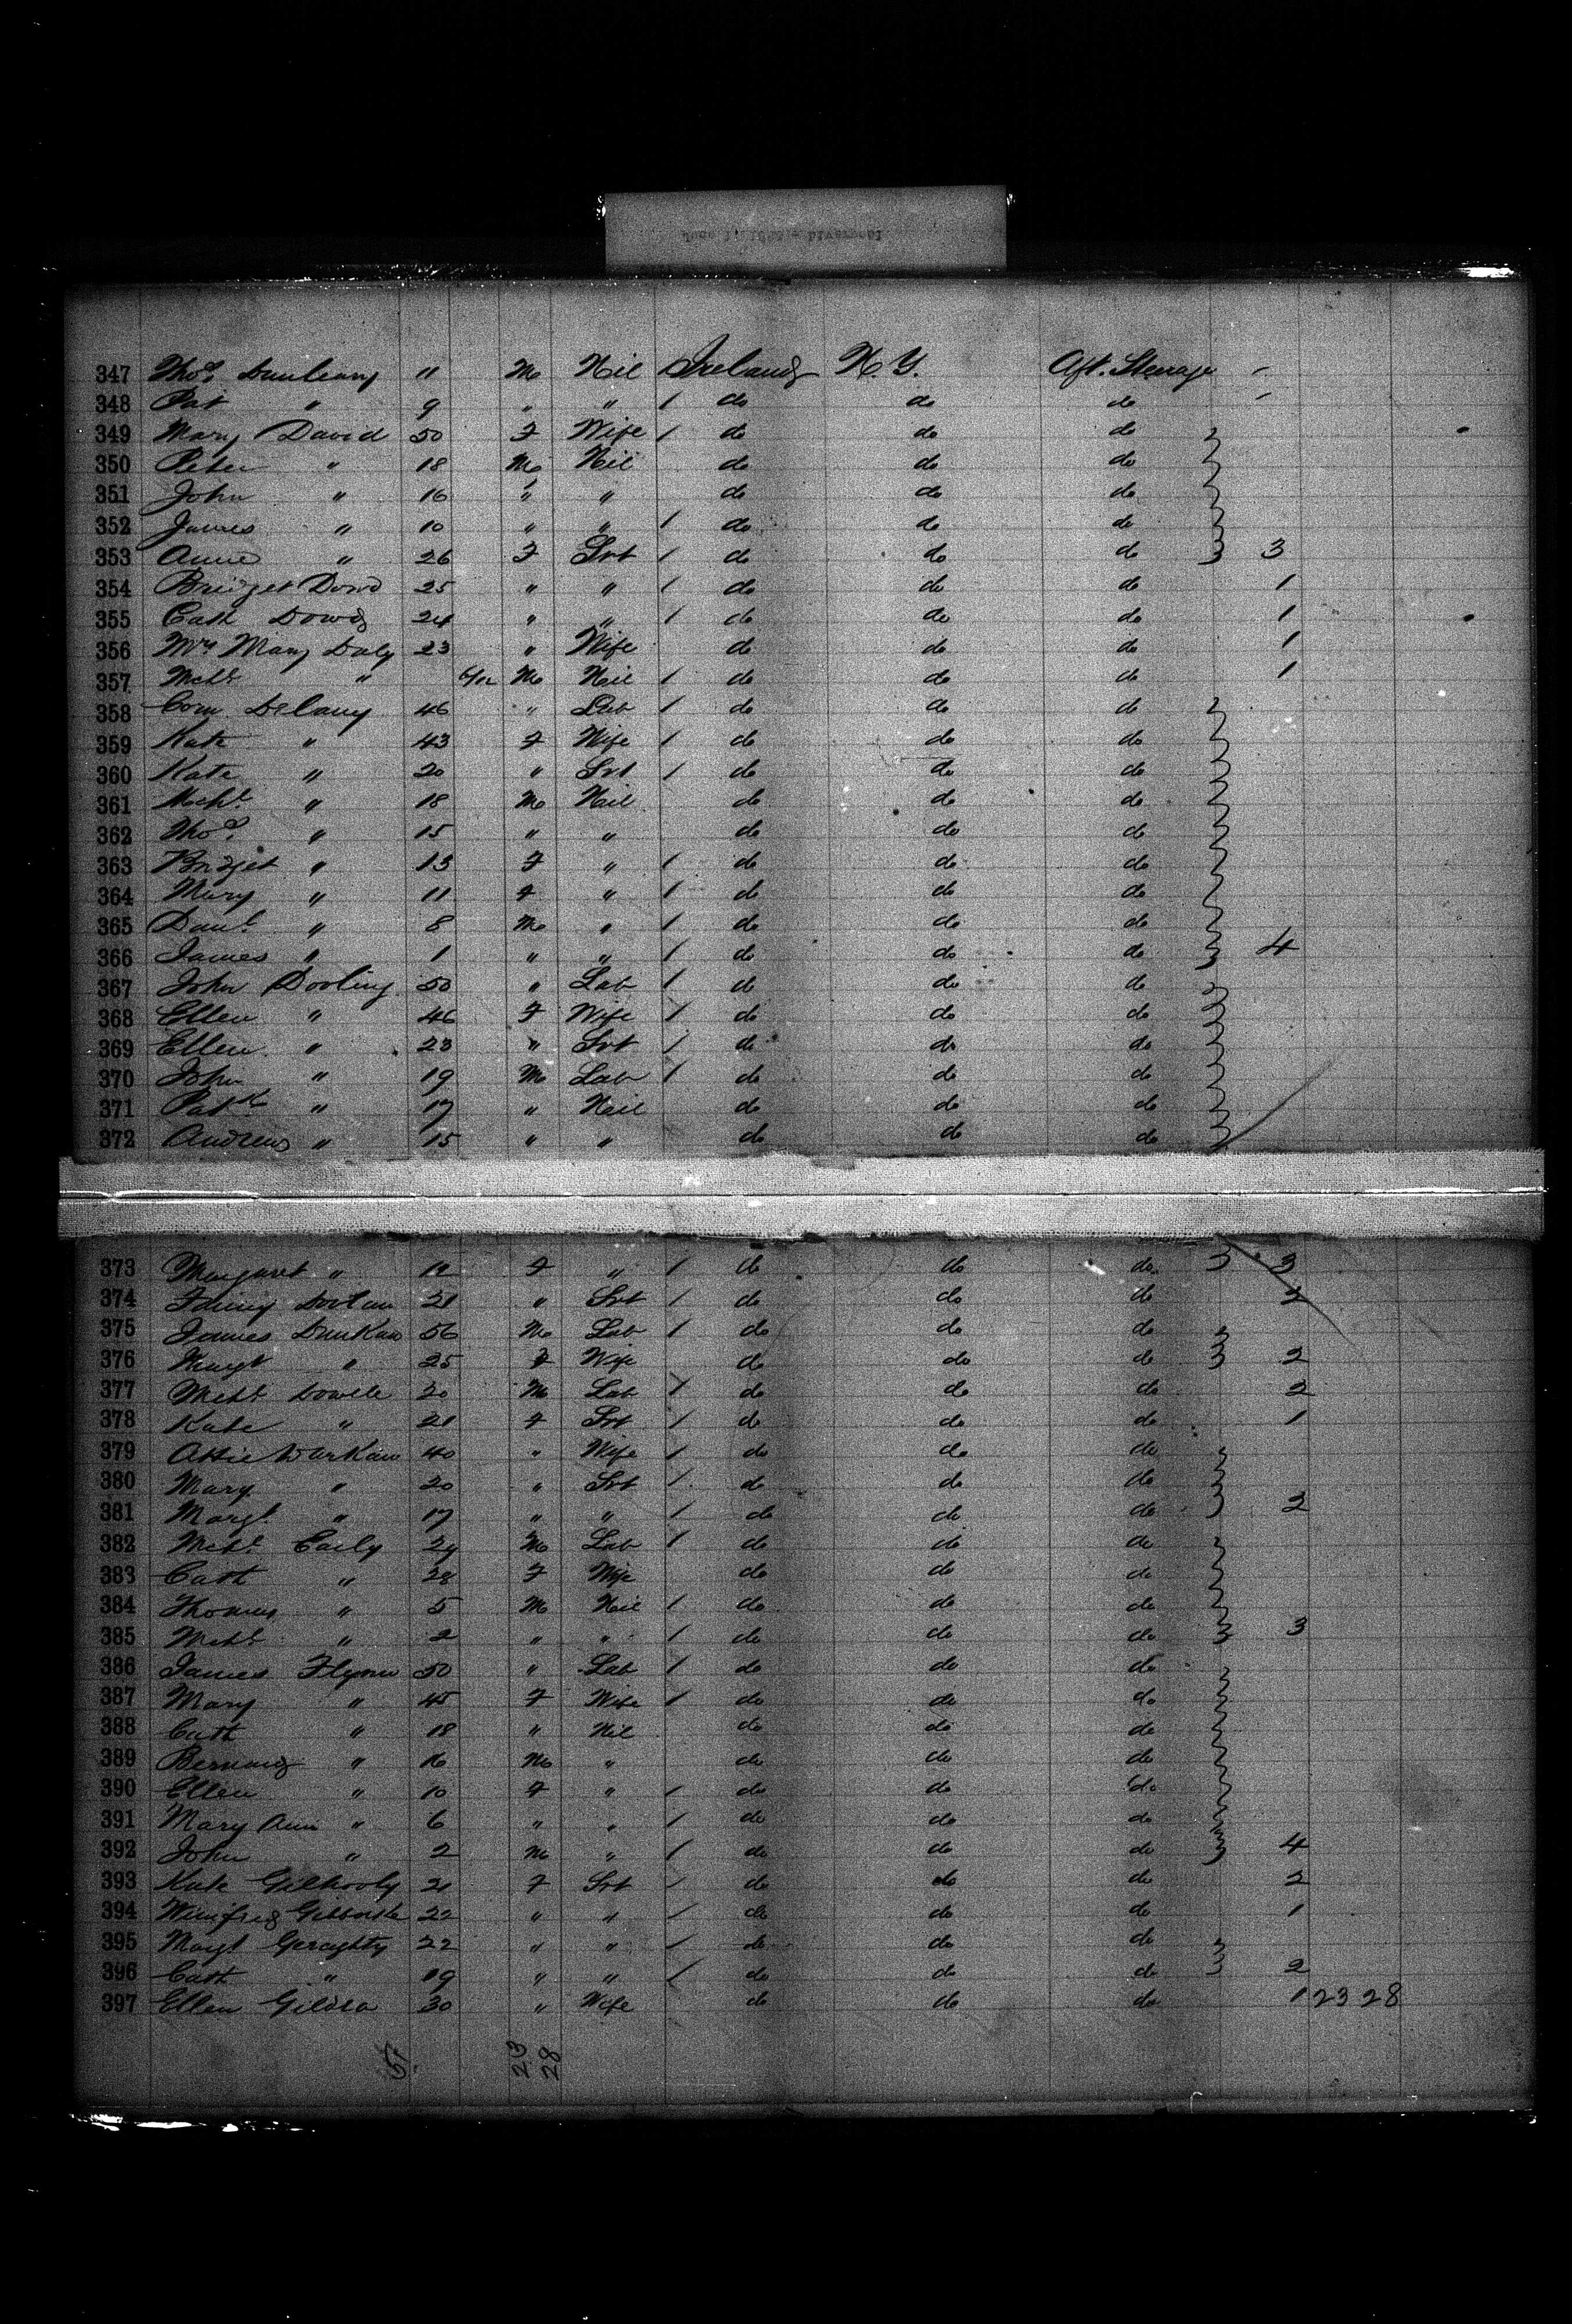 347 Thos. Dunleavy 11 M Nil Ireland N.Y. Aft. Steerage
348 Pat " 9 " " 1 do do do
349 Mary David 50 F Wife 1 do do do
350 Peter " 18 M Nil do do do
351 John " 16 " " do do do
352 James " 10 " " 1 do do do
353 Anne " 26 F Srt 1 do do do 3
354 Bridget Dowd 25 " " 1 do do do 1
355 Cath Dowd 24 " " 1 do do do 1
356 Mrs Mary Daly 23 " Wife do do do 1
357 Michl " 6/12 M Nil 1 do do do 1
358 Corn. Delany 46 " Lab 1 do do do
359 Kate " 43 F Wife 1 do do do
360 Kate " 20 " Srt 1 do do do
361 Michl " 18 M Nil do do do
362 Thos. " 15 " " do do do
363 Bridget " 13 F " 1 do do do
364 Mary " 11 F " 1 do do do
365 Danl. " 8 M " 1 do do do
366 James " 1 " " 1 do do do 4
367 John Dooling 50 " Lab 1 do do do
368 Ellen " 46 F Wife 1 do do do
369 Ellen " 23 " Srt 1 do do do
370 John " 19 M Lab 1 do do do
371 Patk " 17 " Nil do do do
372 Andrew " 15 " " do do do
373 Margaret " 12 F " 1 do do do 3
374 Fanny Doolan 21 " Srt 1 do do do 2
375 James Dunkan 56 M Lab 1 do do do
376 Margt " 25 F Wife do do do 2
377 Michl Dowde 20 M Lab 1 do do do 2
378 Kate " 21 F Srt 1 do do do 1
379 Durkan 40 " Wife 1 do do do
380 Mary " 20 " Srt 1 do do do
381 Margt " 17 " " 1 do do do 2
382 Michl Early 29 M Lab 1 do do do
383 Cath " 28 F Wife do do do
384 Thomas " 5 M Nil 1 do do do
385 Michl " 2 " " 1 do do do 3
386 James Flynn 50 " Lab 1 do do do
387 Mary " 45 F Wife 1 do do do
388 Cath " 18 " Nil do do do
389 Bernard " 16 M " do do do
390 Ellen " 10 F " 1 do do do
391 Mary Ann " 6 " " 1 do do do
392 John " 2 M " 1 do do do 4
393 Kate Gilhooly 21 F Srt 1 do do do 2
394 Winifred 22 " " 1 do do do 1
395 Margt Geraghty 22 " " 1 do do do
396 Cath " 19 " " 1 do do do 2
397 Ellen Gildea 30 " Wife do do do 1 23 28
23
28